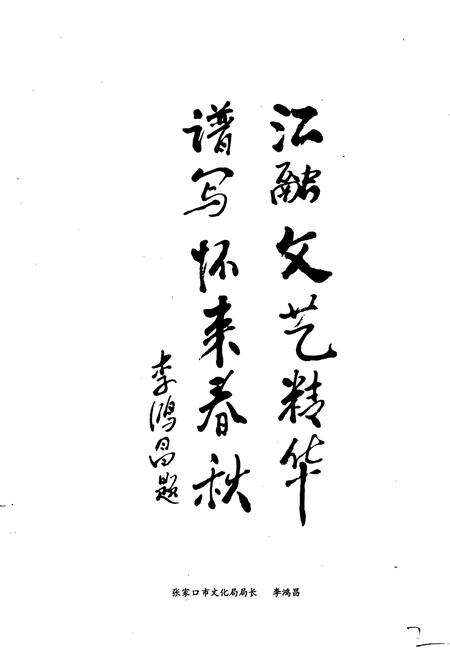 汇融文艺精华
谱写怀来春秋
李鸿昌题
张家口市文化局局长 李鸿昌